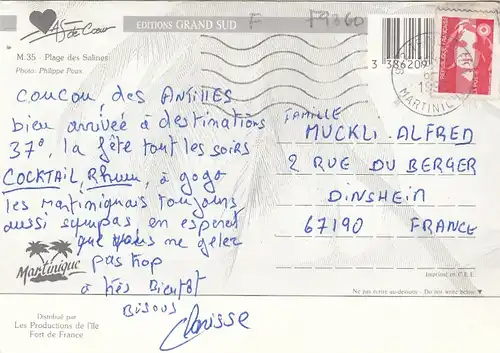 As de Cœur
EDITIONS GRAND SUD
F
F9860
M.35 - Plage des Salines
Photo: Philippe Poux
3 386209
MARTINIQUE
COUCOU, des ANTILLES
bien arrivée à destinations
37°, la fête tout les soirs
COCKTAIL, Rhum, à gogo
les Martiniquais toujours
aussi sympas en esperant
que vous ne geler
pas trop
à très Bientôt
BISOUS
Clarisse
FAMILLE
MUCKLI. ALFRED
2 RUE DU BERGER
DINSHEIM
67190 FRANCE
Martinique
Imprimé en C.E.E.
Ne pas écrire au-dessous - Do not write below
Distribué par
Les Productions de l'Ile
Fort de France